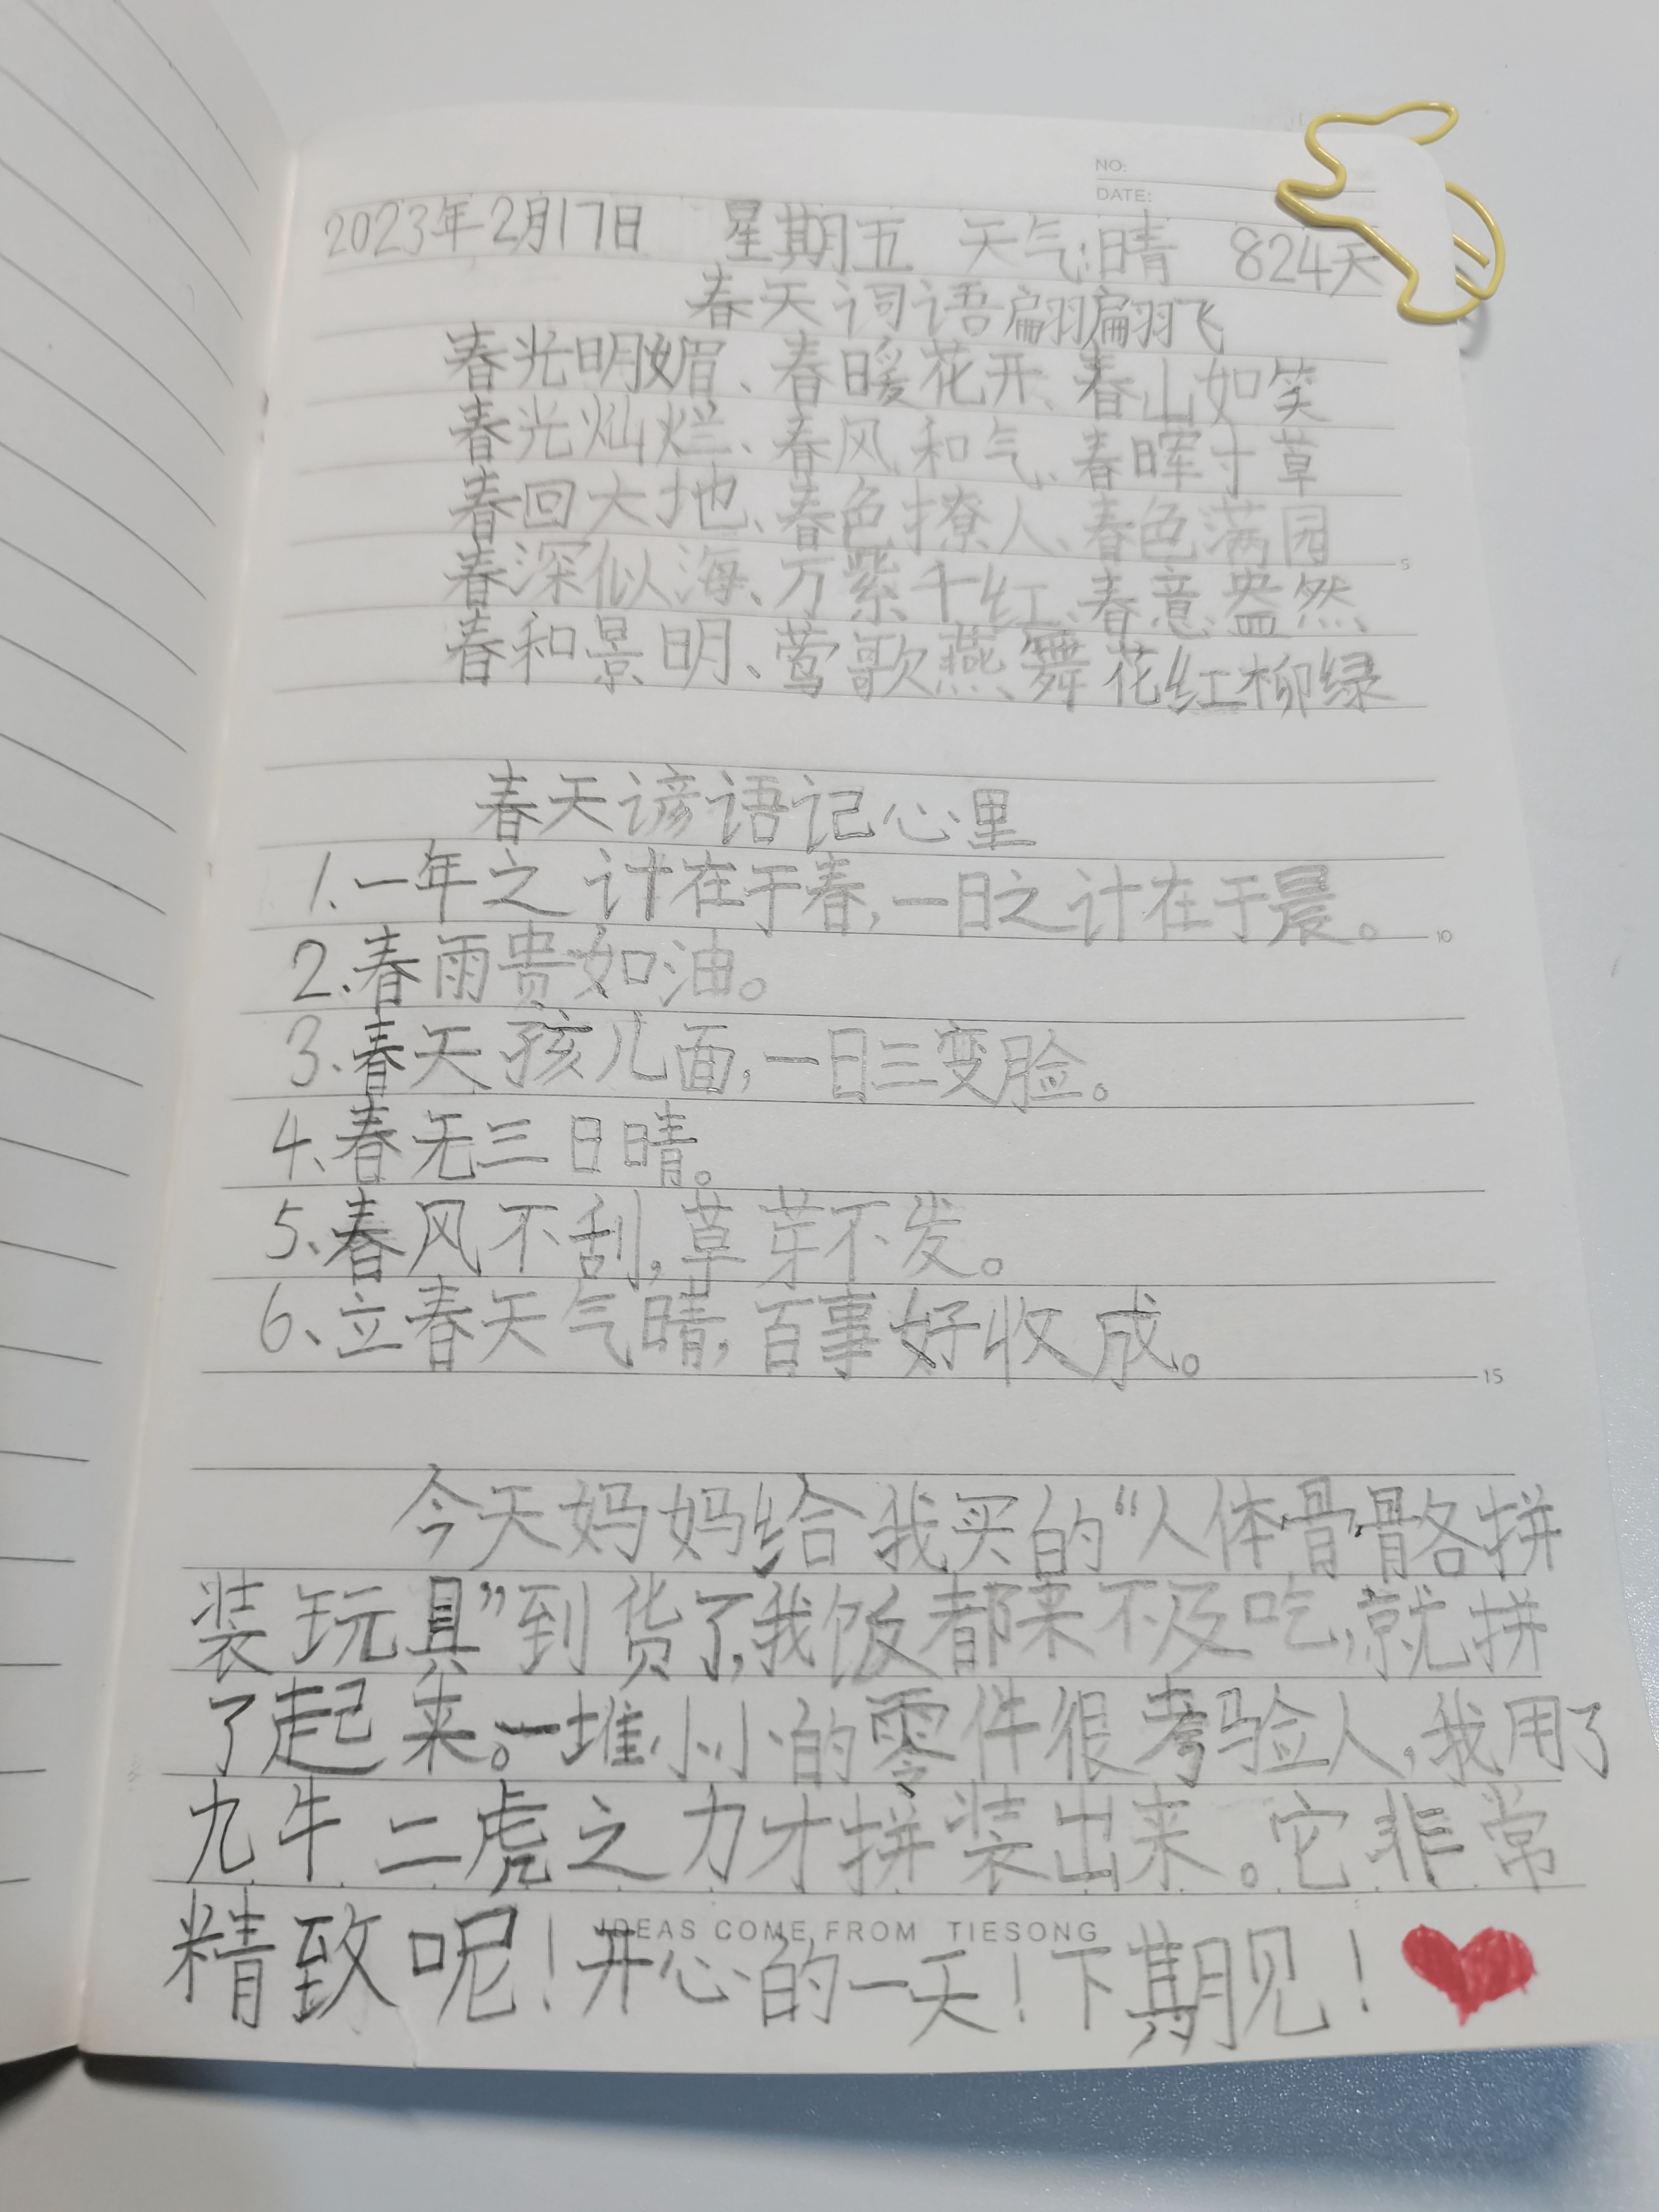 NO:
DATE:
2023年2月17日 星期五 天气:晴 824天
春天词语翩翩飞
春光明媚、春暖花开、春山如笑
春光灿烂、春风和气、春晖寸草
春回大地、春色撩人、春色满园
5
春深似海、万紫千红、春意盎然、
春和景明、莺歌燕舞 花红柳绿
春天谚语记心里
1.一年之计在于春,一日之计在于晨。
10
2.春雨贵如油。
3.春天孩儿面,一日三变脸。
4、春无三日晴。
5、春风不刮,草芽不发。
6、立春天气晴,百事好收成。
15
今天妈妈给我买的“人体骨骼拼
装玩具”到货了,我饭都来不及吃,就拼
了起来。一堆小小的零件很考验人,我用了
九牛二虎之力才拼装出来。它非常
IDEAS COME FROM TIESONG
精致呢!开心的一天!下期见!